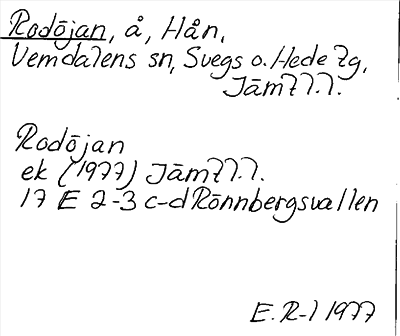 Rodöjan, å, Hån,
Vemdalens sn, Svegs o. Hede tg,
Jämtl.l.
Rodöjan
ek (1977) Jämtl.l.
17 E 2-3 c-d Rönnbergsvallen
E. R-l 1977